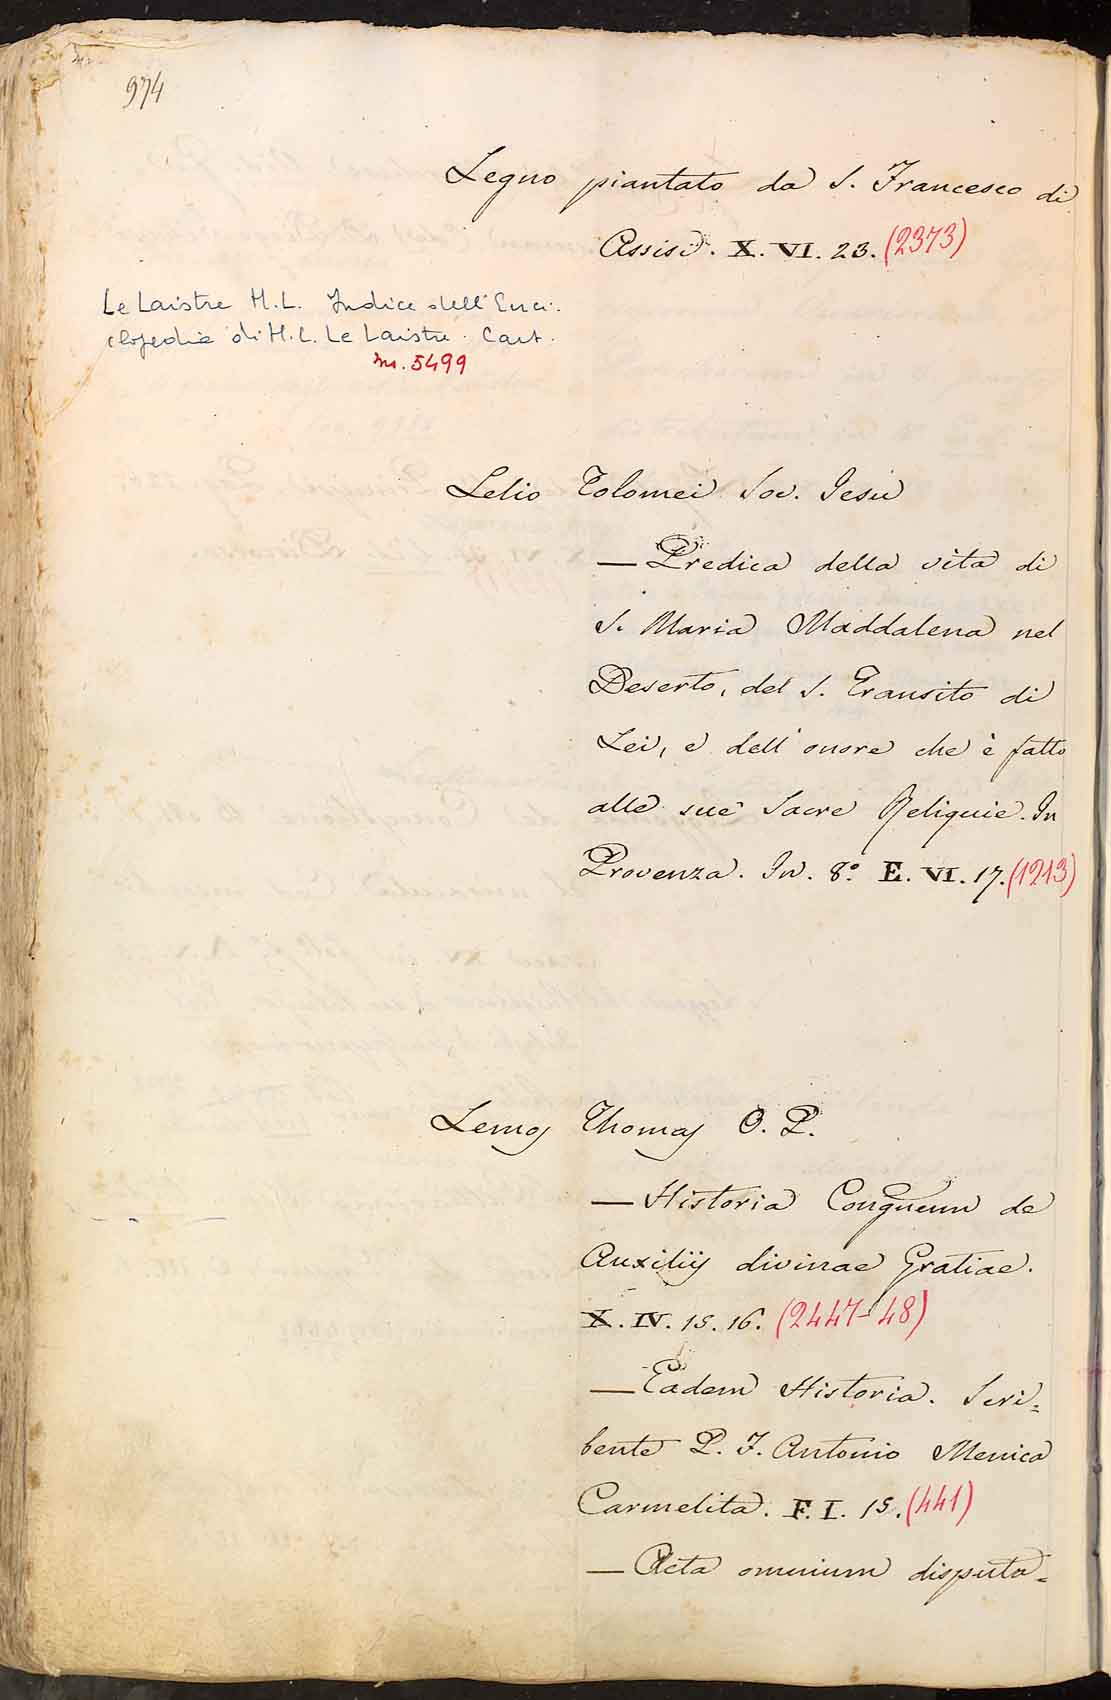 974
Legno piantato da S. Francesco di
Assisi. X. VI. 23. (2373)
Le Laistre H. L. Indice dell'Enci-
clopedia di H. L. Le Laistre. Cart.
ms. 5499
Lelio Tolomei Soc. Jesu
— Predica della vita di
S. Maria Maddalena nel
Deserto, del S. Transito di
Lei, e dell'onore che è fatto
alle sue Sacre Reliquie. In
Provenza. In. 8.° E. VI. 17. (1213)
Lemos Thomas O. P.
— Historia Congnum de
Auxiliis divinae Gratiae.
X. IV. 15. 16. (2447-48)
— Eadem Historia. Scri=
bente P. F. Antonio Menica
Carmelita. F. I. 15. (441)
— Acta omnium disputa=